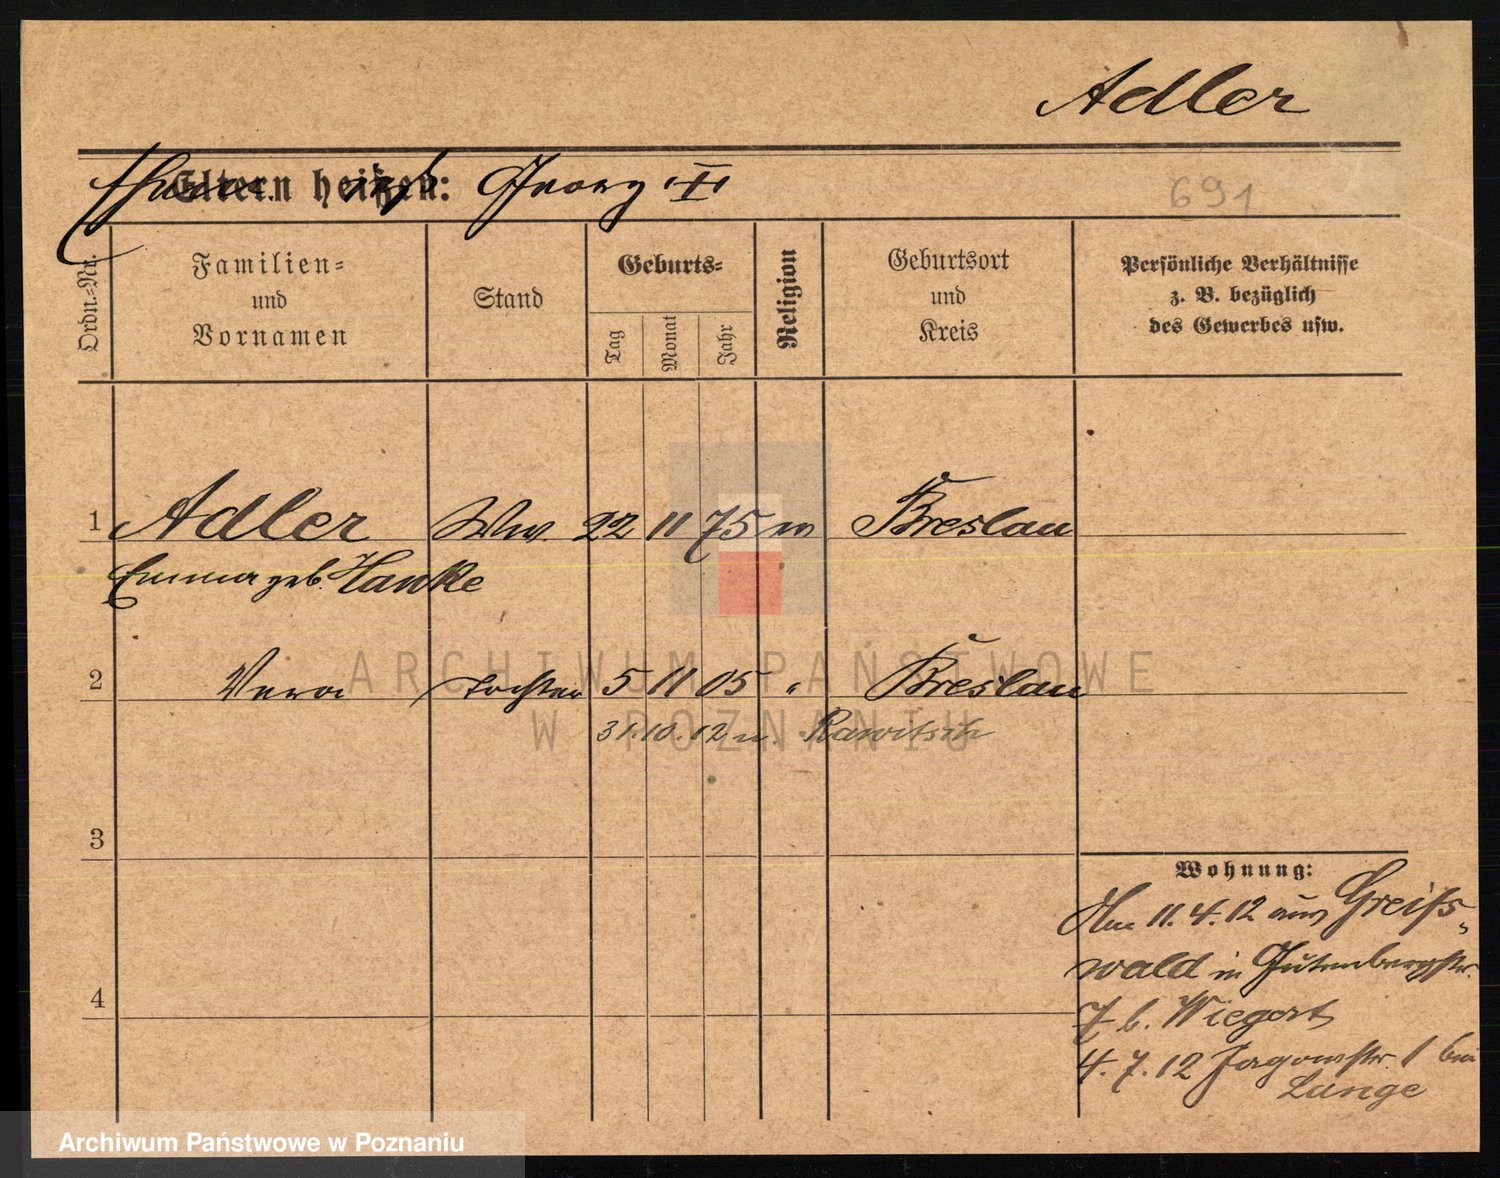 Adler
Eltern heißen:
Georg III
691
Ordn.-Nr.
Familien-
und
Vornamen
Stand
Geburts-
Tag
Monat
Jahr
Religion
Geburtsort
und
Kreis
Persönliche Verhältnisse
z. B. bezüglich
des Gewerbes usw.
1 Adler Ww. 22 11 75 Breslau
Emma geb. Hanke
2 Vera Tochter 5 11 05 " Breslau
31.10.12 n. Rawitsch
3
Wohnung:
Am 11.4.12 aus Greifs-
wald in Gutenbergstr.
7 b. Wiegert
4
4.7.12 Jagowstr. 1 bei
Lange
ARCHIWUM PAŃSTWOWE
W POZNANIU
Archiwum Państwowe w Poznaniu